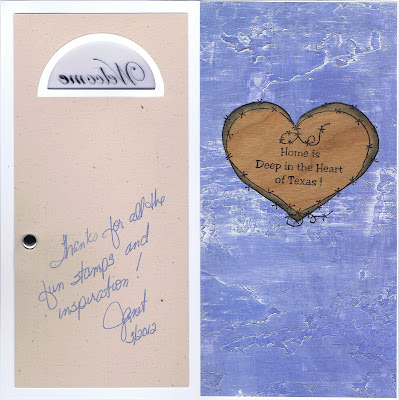 Welcome
Thanks for all the
fun stamps and
inspiration!
Janet
3/2012
Home is
Deep in the Heart
of Texas!